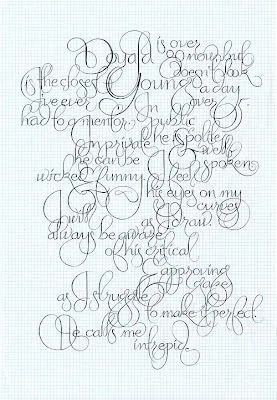 Donald is over
now, but
doesn't look
is the closest Young a day
I've ever In over
had to a mentor. public
he is polite
In private & well
he can be spoken.
wicked funny. I feel
his eyes on my
curves
I will as I draw.
always be aware
of his critical
& approving
gaze
as I struggle
to make it perfect.
He calls me
intrepid.